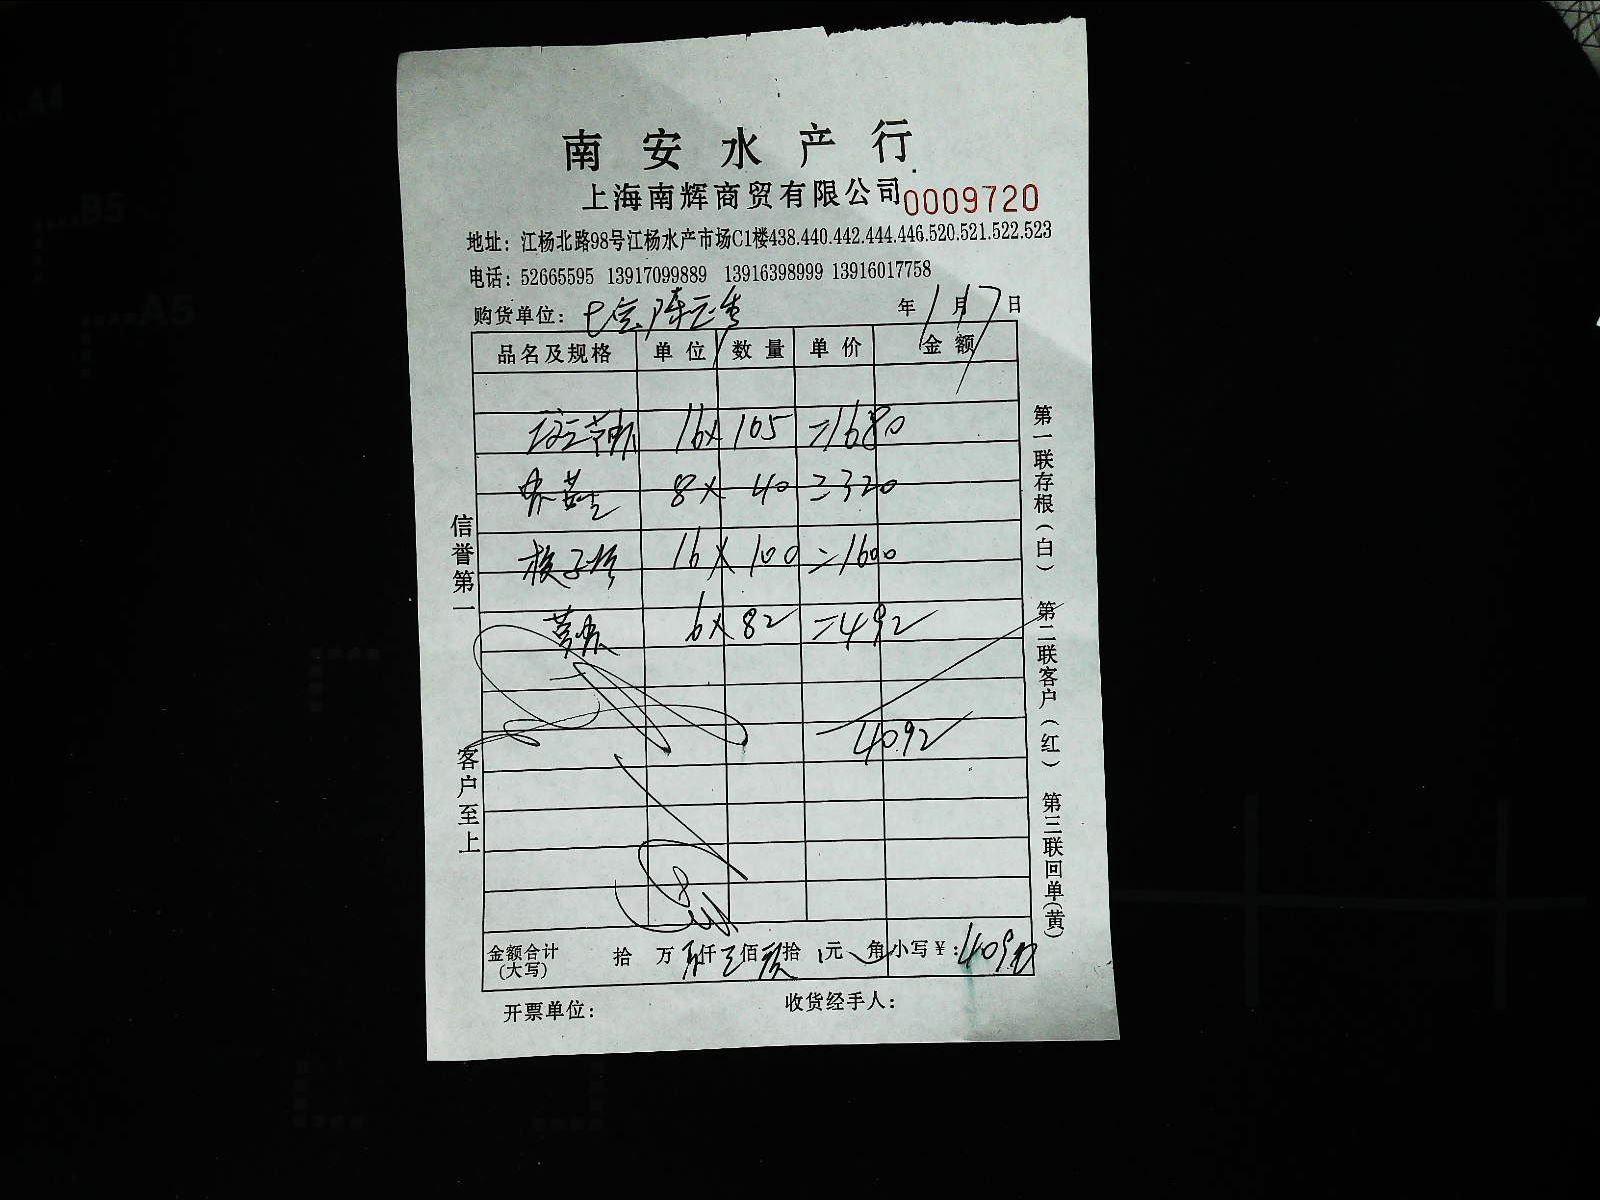 南安水产行
上海南辉商贸有限公司 0009720
地址：江杨北路98号江杨水产市场C1楼438.440.442.444.446.520.521.522.523
电话：52665595 13917099889 13916398999 13916017758
购货单位： 年 1 月 7 日
品名及规格 单位 数量 单价 金额
16× 105 =1680
8× 40 =320
16× 100 =1600
6× 82 =492
4092
金额合计(大写) 拾 万 仟 佰 拾 元 角 小写￥：4092
开票单位： 收货经手人：
信誉第一 客户至上
第一联存根(白) 第二联客户(红) 第三联回单(黄)